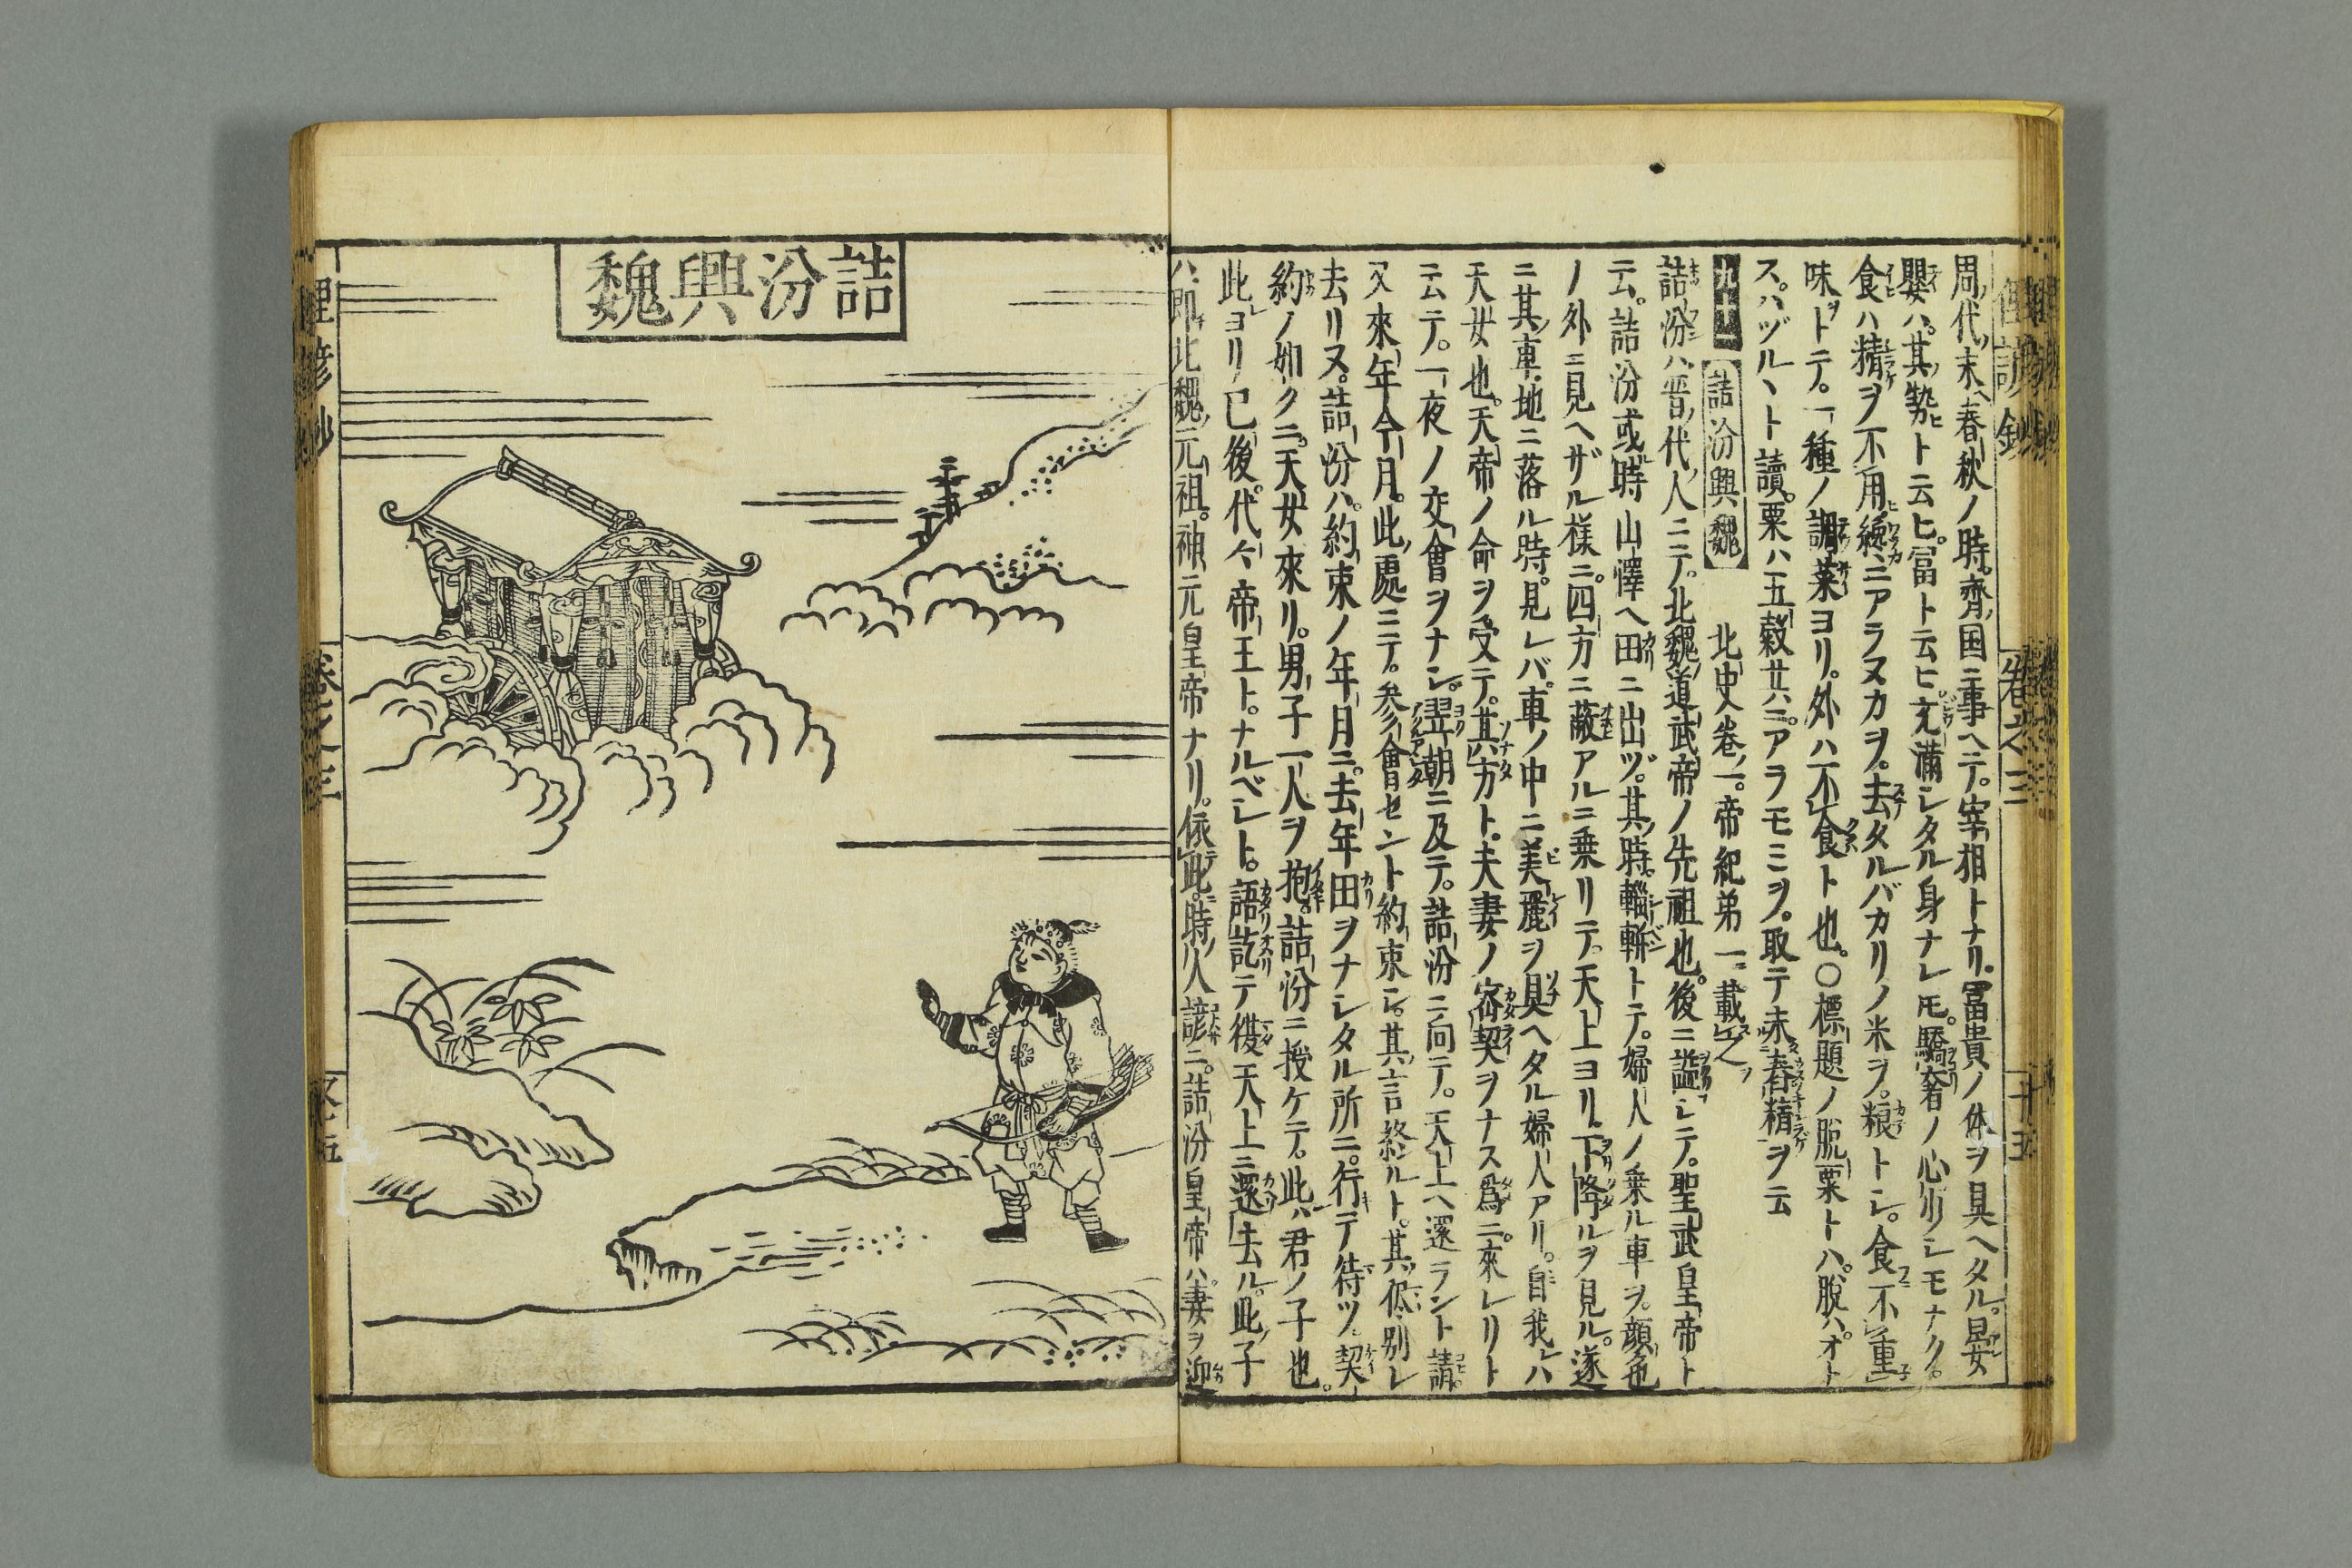 周ノ代ノ末、春秋ノ時。齊ノ国ニ事ヘテ。宰相トナリ。冨貴ノ体ヲ具ヘタル。晏
嬰ハ。其ノ勢ヒト云ヒ。冨ト云ヒ充滿シタル身ナレ𪜈。驕奢ノ心少シモナク。
食ハ精ヲ不用。纔ニアラヌカヲ。去タルバカリノ米ヲ。粮トシ。食不重
味ヲトテ。一種ノ調菜ヨリ。外ハ不食ト也。〇標題ノ脱粟トハ。脱ハ。オト
ス。ハヅルヽト讀。粟ハ五穀廿八ニ。アラモミヲ。取テ未舂精ヲ云
九十 詰汾興魏 北史卷ノ一。帝紀第一ニ載之ヲ
詰汾ハ。晋ノ代ノ人ニテ。北魏ノ道武帝ノ先祖也。後ニ謚シテ。聖武皇帝ト
云。詰汾或時山澤ヘ田ニ出ヅ。其時。輜軿トテ。婦人ノ乗ル車ヲ。顔色
ノ外ニ見ヘザル樣ニ。四方ニ蔽アルニ乗リテ。天上ヨリ。下降ルヲ見ル。遂
ニ其ノ車。地ニ落ル時。見レバ。車ノ中ニ美麗ヲ具ヘタル婦人アリ。自我レハ
天女也。天帝ノ命ヲ受テ。其方ト。夫妻ノ密契ヲナス爲ニ。來レリト
云テ。一夜ノ交會ヲナシ。翌朝ニ及テ。詰汾ニ向テ。天上ヘ還ラント請。
又來年今月。此ノ處ニテ。参會セント約束シ。其ノ言終ルト。其ノ侭別レ
去リヌ。詰汾ハ。約束ノ年月ニ。去年田ヲナシタル所ニ。行テ待ツ。契
約ノ如クニ。天女來リ。男子一人ヲ抱。詰汾ニ授ケテ。此ハ君ノ子也。
此レヨリ已後。代々帝王ト。ナルベシト。語訖テ復天上ニ還去ル。此ノ子
ハ即此魏ノ元祖。神元皇帝ナリ。依此。時ノ人諺ニ。詰汾皇帝ハ。妻ヲ迎
詰汾興魏
卷之三